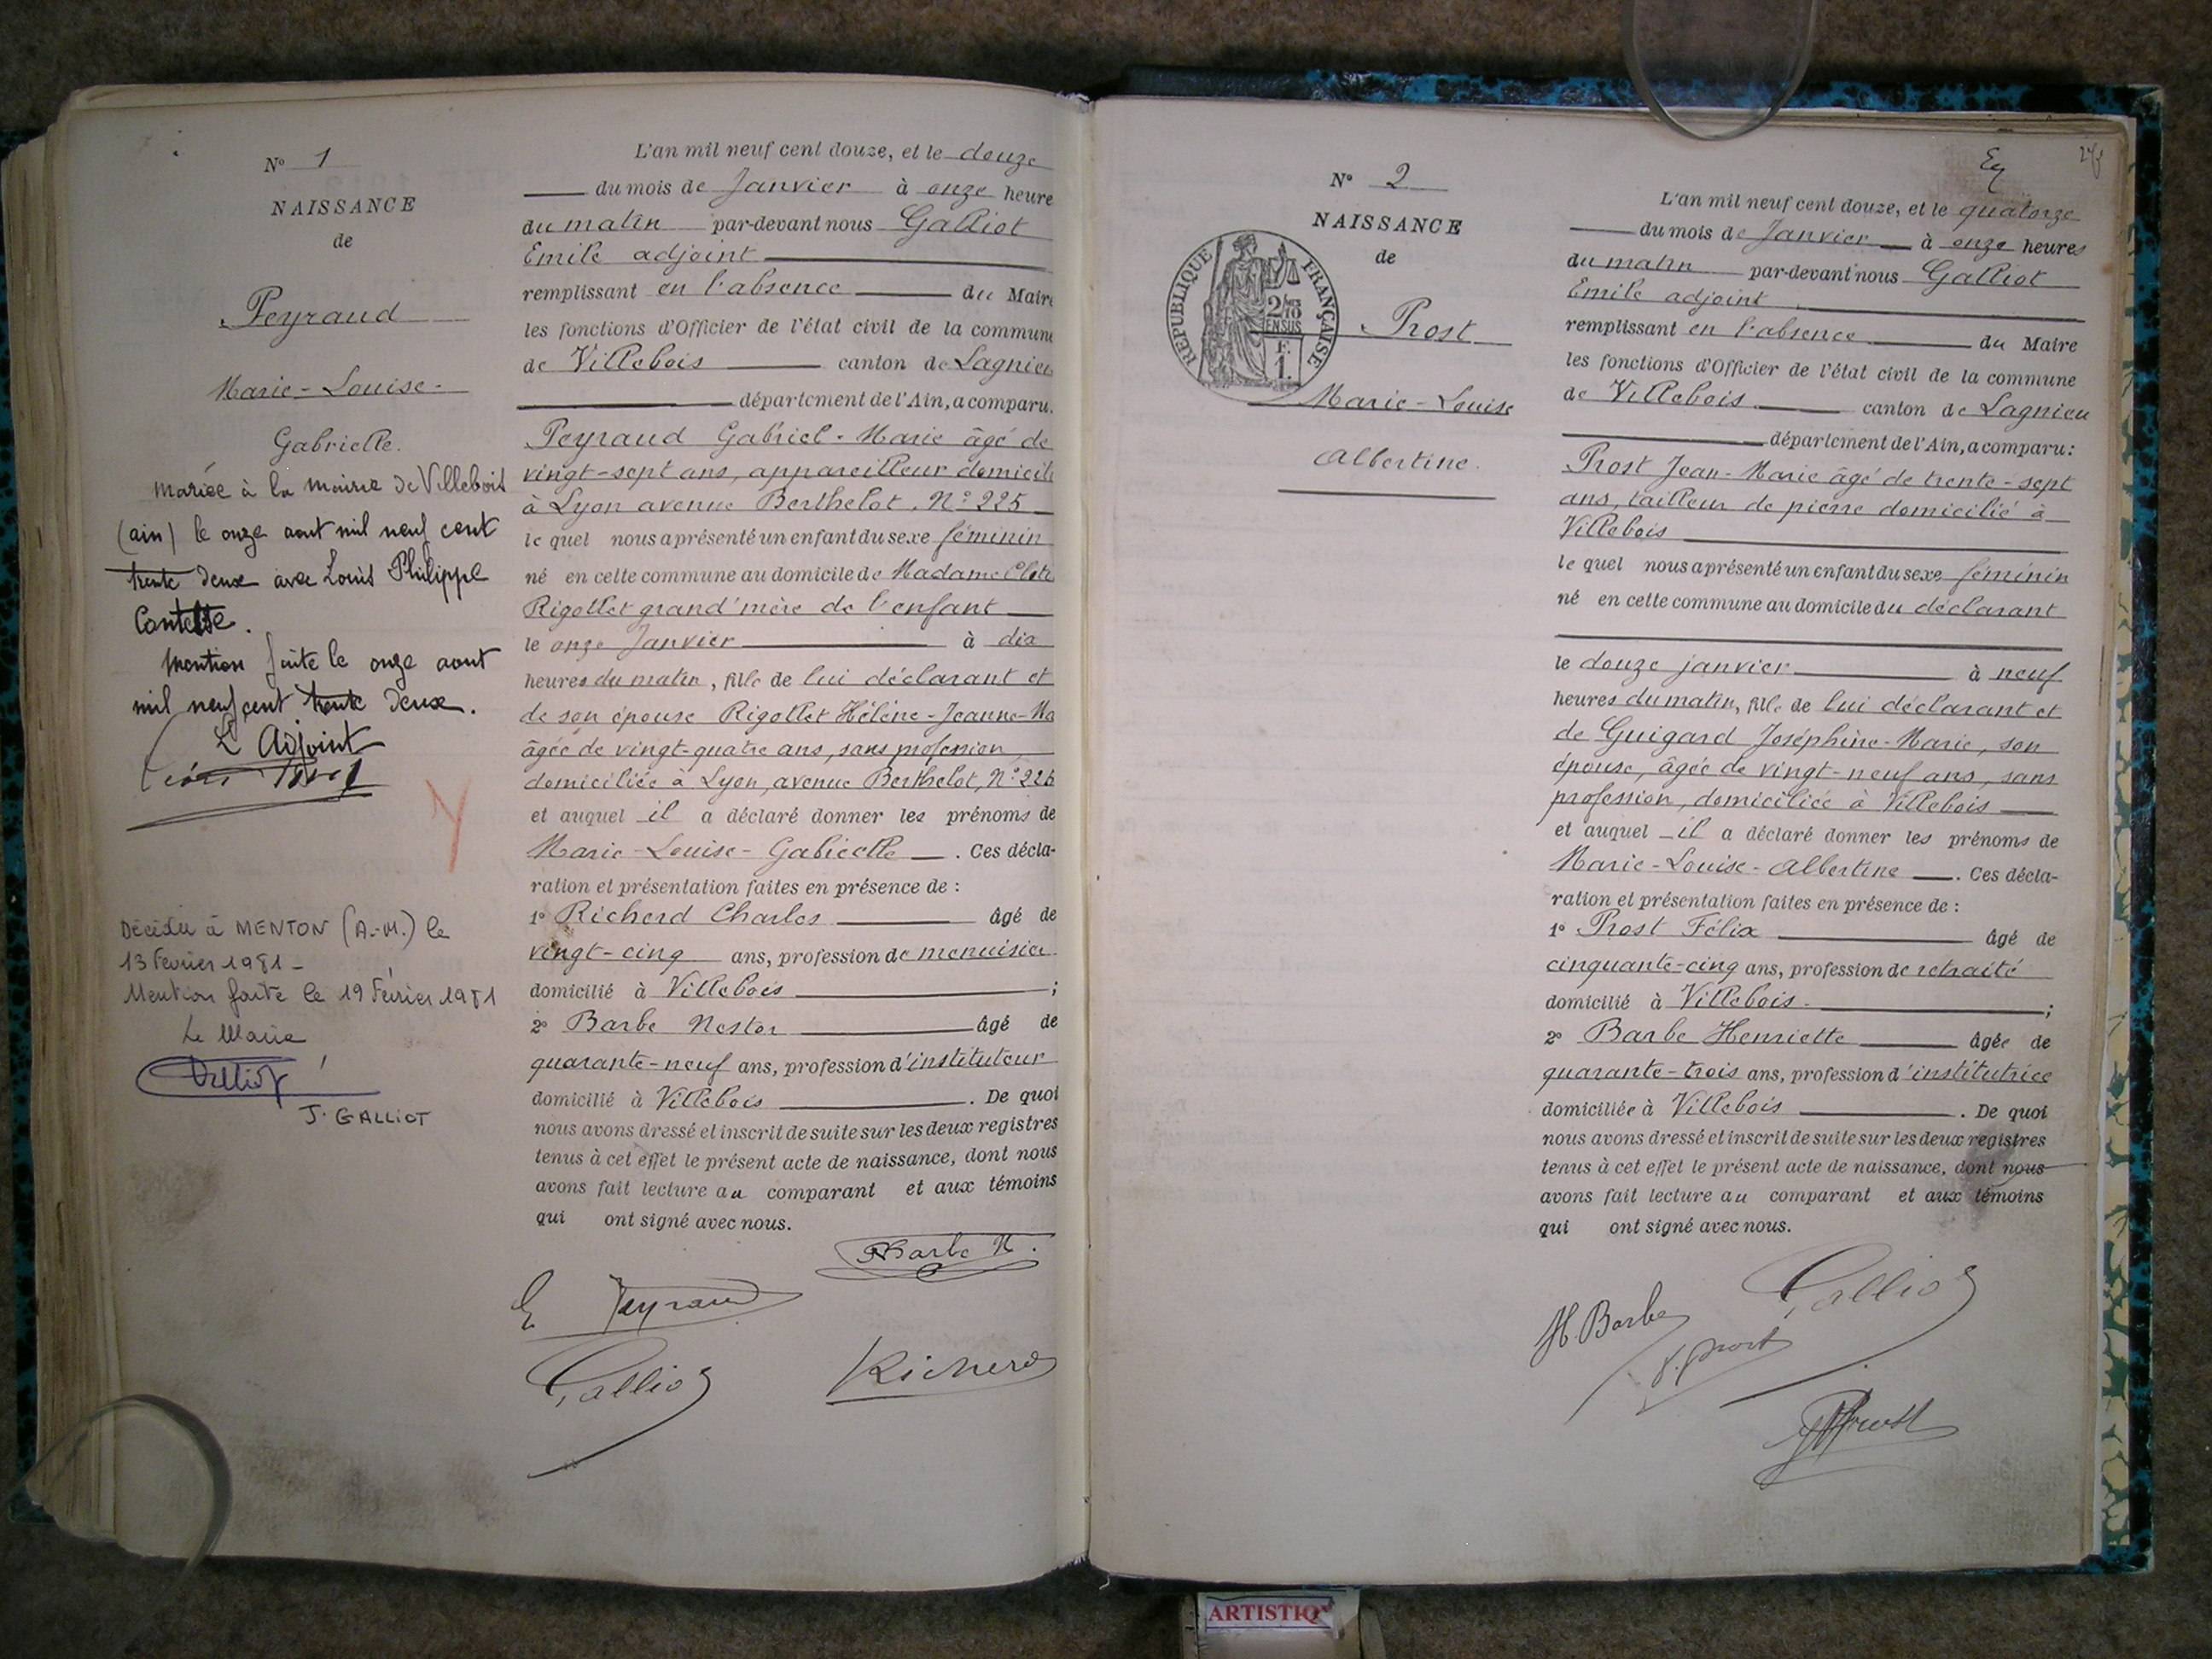 N° 1
NAISSANCE
de
Peyraud
Marie-Louise-
Gabrielle.
mariée à la mairie de Villebois
(ain) le onze aout mil neuf cent
trente deux avec Louis Philippe
mention faite le onze aout
mil neuf cent trente deux.
L'Adjoint
Décédée à MENTON (A.-M.) le
13 Février 1981 -
Mention faite le 19 Février 1981
Le Maire
J. GALLIOT
L'an mil neuf cent douze, et le douze
du mois de Janvier à onze heure
du matin par-devant nous Galliot
Emile adjoint
remplissant en l'absence du Maire
les fonctions d'Officier de l'état civil de la commune
de Villebois canton de Lagnieu
département de l'Ain, a comparu.
Peyraud Gabriel-Marie âgé de
vingt-sept ans, appareilleur domicili
à Lyon avenue Berthelot, N° 225
le quel nous a présenté un enfant du sexe féminin
né en cette commune au domicile de Madame
Rigollet grand'mère de l'enfant
le onze Janvier à dix
heures du matin, fille de lui déclarant et
de son épouse Rigollet Hélène-Jeanne-Ma
âgée de vingt-quatre ans, sans profession,
domiciliée à Lyon, avenue Berthelot, N° 225
et auquel il a déclaré donner les prénoms de
Marie-Louise-Gabrielle. Ces décla-
ration et présentation faites en présence de :
1° Richerd Charles âgé de
vingt-cinq ans, profession de menuisier
domicilié à Villebois ;
2° Barbe Nestor âgé de
quarante-neuf ans, profession d'instituteur
domicilié à Villebois. De quoi
nous avons dressé et inscrit de suite sur les deux registres
tenus à cet effet le présent acte de naissance, dont nous
avons fait lecture au comparant et aux témoins
qui ont signé avec nous.
Barbe N.
G Peyraud
Galliot
Richerd
N° 2
NAISSANCE
de
RÉPUBLIQUE FRANÇAISE
2/10
EN SUS
F.
1.
Prost
Marie-Louise
Albertine.
L'an mil neuf cent douze, et le quatorze
du mois de Janvier à onze heures
du matin par-devant nous Galliot
Emile adjoint
remplissant en l'absence du Maire
les fonctions d'Officier de l'état civil de la commune
de Villebois canton de Lagnieu
département de l'Ain, a comparu :
Prost Jean-Marie âgé de trente-sept
ans, tailleur de pierre domicilié à
Villebois
le quel nous a présenté un enfant du sexe féminin
né en cette commune au domicile du déclarant
le douze janvier à neuf
heures du matin, fille de lui déclarant et
de Guigard Joséphine-Marie, son
épouse, âgée de vingt-neuf ans, sans
profession, domiciliée à Villebois
et auquel il a déclaré donner les prénoms de
Marie-Louise-Albertine. Ces décla-
ration et présentation faites en présence de :
1° Prost Félix âgé de
cinquante-cinq ans, profession de retraité
domicilié à Villebois. ;
2° Barbe Henriette âgée de
quarante-trois ans, profession d'institutrice
domiciliée à Villebois. De quoi
nous avons dressé et inscrit de suite sur les deux registres
tenus à cet effet le présent acte de naissance, dont nous
avons fait lecture au comparant et aux témoins
qui ont signé avec nous.
H. Barbe
Galliot
F. Prost
Prost
ARTISTIQ